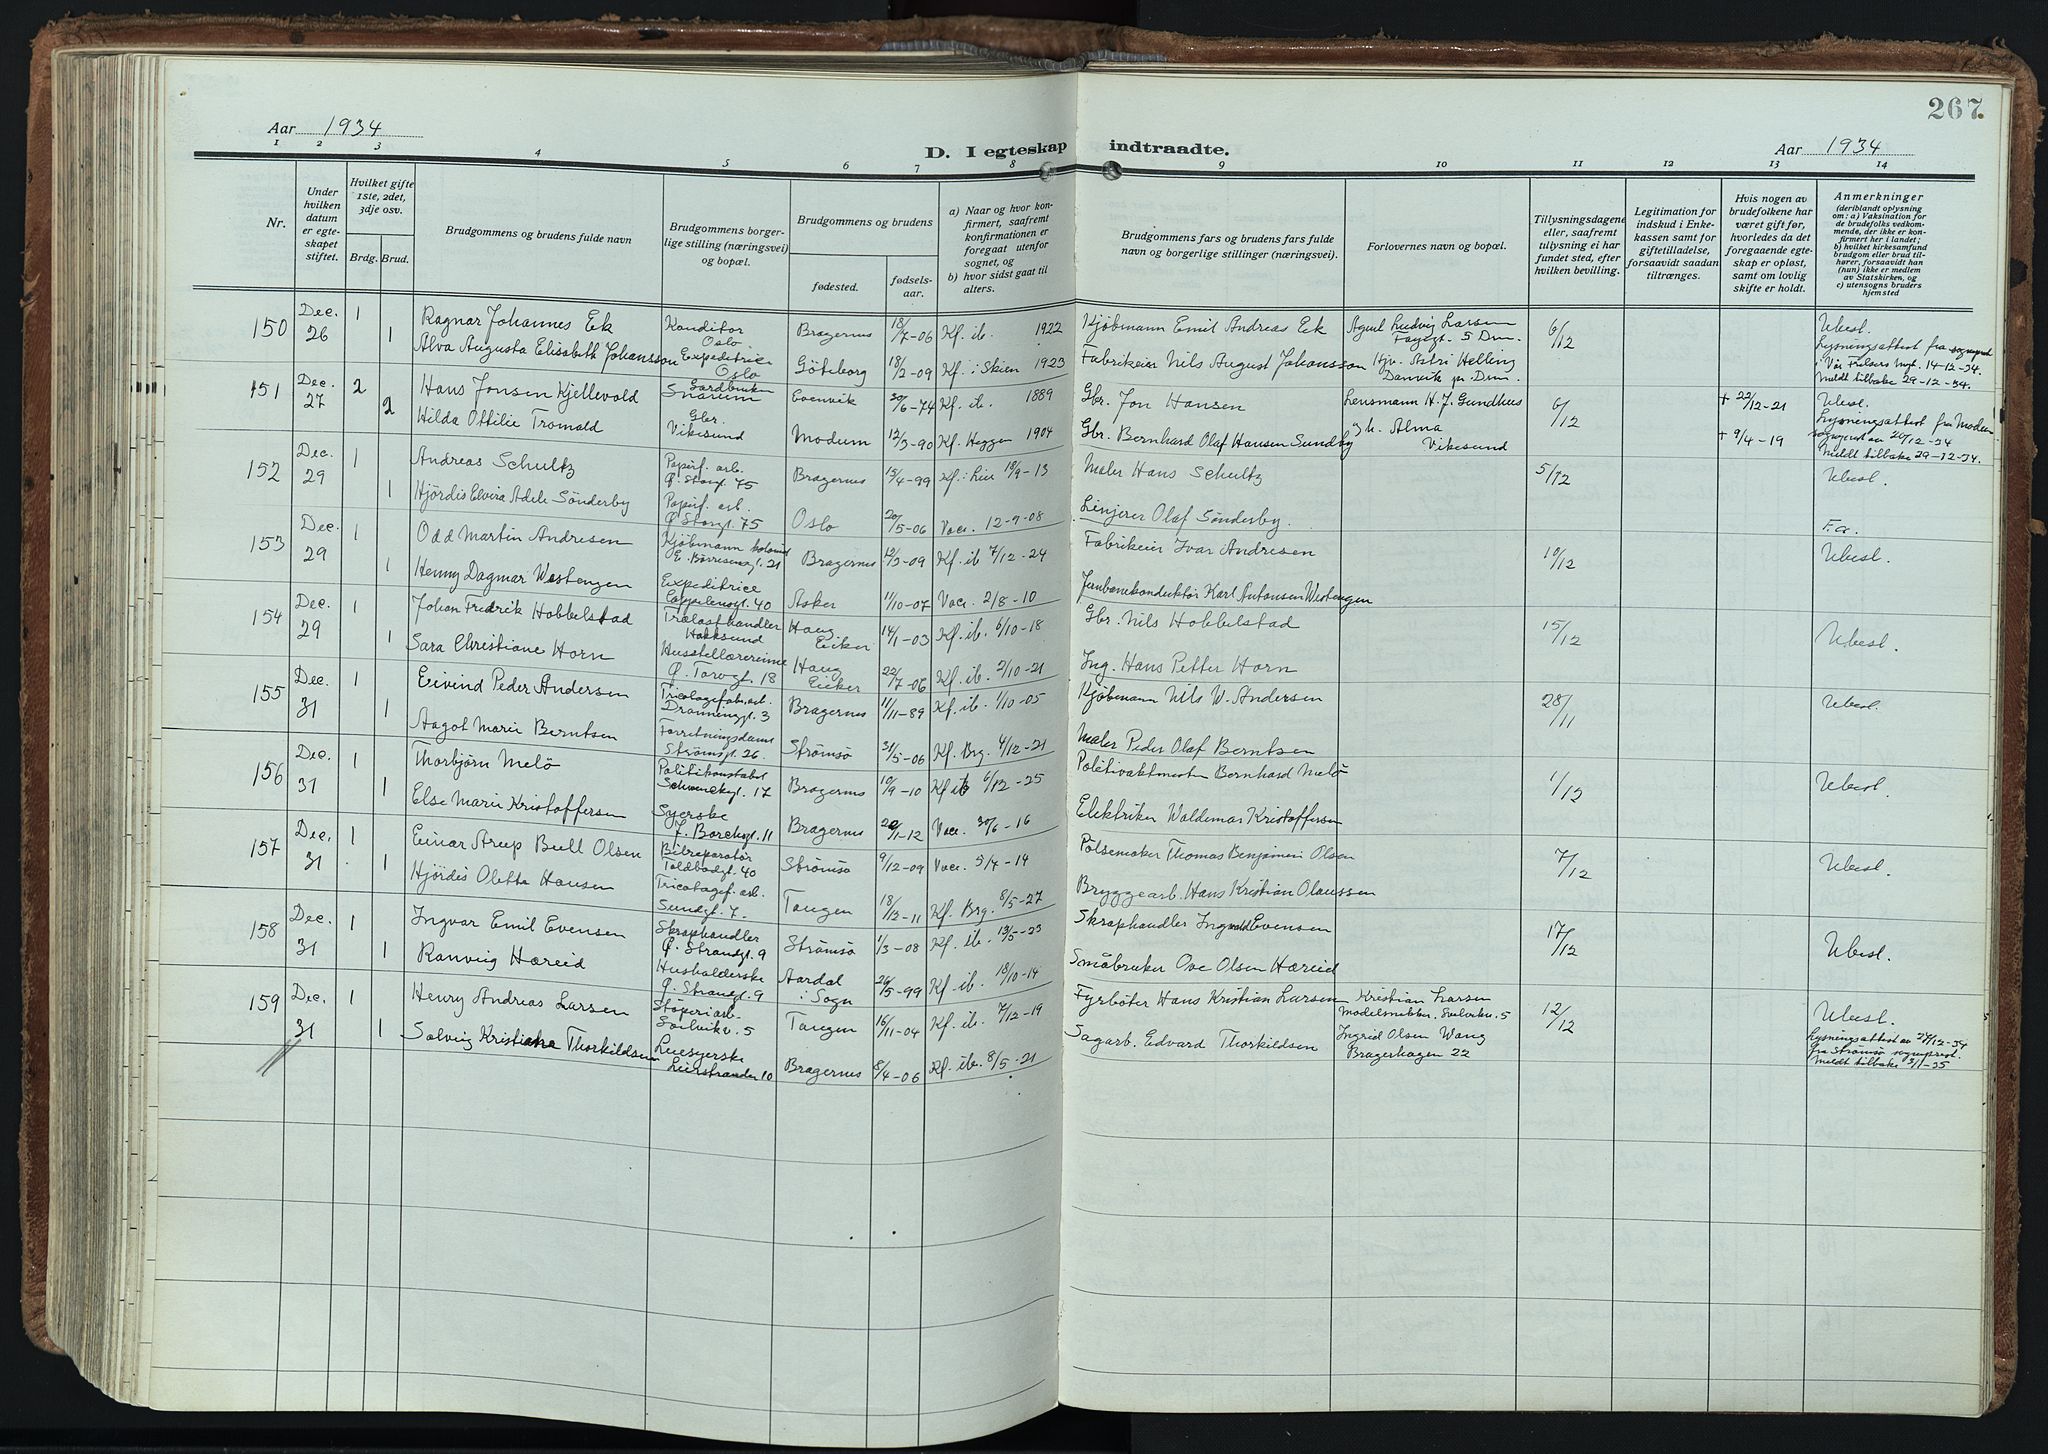 267.
Aar 1934
D. I egteskap indtraadte.
Aar 1934
1 2 3 4 5 6 7 8 9 10 11 12 13 14
Nr.
Under hvilken datum er egteskapet stiftet.
Hvilket gifte 1ste, 2det, 3dje osv.
Brdg. Brud.
Brudgommens og brudens fulde navn
Brudgommens borgerlige stilling (næringsvei) og bopæl.
Brudgommens og brudens
fødested.
fødselsaar.
a) Naar og hvor konfirmert, saafremt konfirmationen er foregaat utenfor sognet, og
b) hvor sidst gaat til alters.
Brudgommens fars og brudens fars fulde navn og borgerlige stillinger (næringsvei).
Forlovernes navn og bopæl.
Tillysningsdagene eller, saafremt tillysning ei har fundet sted, efter hvilken bevilling.
Legitimation for indskud i Enkekassen samt for giftetilladelse, forsaavidt saadan tiltrænges.
Hvis nogen av brudefolkene har været gift før, hvorledes da det foregaaende egteskap er opløst, samt om lovlig skifte er holdt.
Anmerkninger
(deriblandt oplysning om: a) Vaksination for de brudefolks vedkommende, der ikke er konfirmert her i landet; b) hvilket kirkesamfund brudgom eller brud tilhører, forsaavidt han (hun) ikke er medlem av Statskirken, og c) utensogns bruders hjemsted
150 Dec. 26 1 Ragnar Johannes Ek Konditor Oslo Bragernes 18/7-06 Kf. ib. 1922 Kjøbmann Emil Andreas Ek Ludvig Larsen 5 Drm. 6/12 Ubesl.
1 Alva Augusta Elisabeth Johansson Expeditrice Oslo Göteborg 18/2-09 Kf. i Skien 1923 Fabrikeier Nils August Johansson Hjv. Astri Helling Danvik pr. Drm. Lysningsattest fra sogneprest i Vår Frelsers mgt. 14-12-34. Meldt tilbake 29-12-34.
151 Dec. 27 2 Hans Jonsen Kjellevold Gardbruker Snarum Evenvik 30/6-74 Kf. ib. 1889 Gbr. Jon Hansen Lensmann H. J. Gundhus 6/12 + 22/12-21 Ubesl.
2 Hilda Ottilie Tromald Gbr. Vikesund Modum 12/3-90 Kf. Heggen 1904 Gbr. Bernhard Olaf Hansen Sundby Alma Vikesund + 9/4-19 Lysningsattest fra Modum sogneprest av 20/12-34 Meldt tilbake 29-12-34.
152 Dec. 29 1 Andreas Schultz Papirf. arb. Ø. Storgt. 75 Bragernes 15/4-99 Kf. i Lier 18/9-13 Maler Hans Schultz 5/12 Ubesl.
1 Hjördis Elvira Adele Sönderby Papirf. arb. Ø Storgt. 75 Oslo 20/5-06 Vacc. 12-9-08 Linjerer Olaf Sønderby. Fa.
153 Dec. 29 1 Odd Martin Andresen Kjöbmann E. Børresensgt. 21 Bragernes 12/3-09 Kf. ib 7/12-24 Fabrikeier Ivar Andresen 10/12 Ubesl.
1 Henny Dagmar Westengen Expeditrice Cappelensgt. 40 Asker 11/10-07 Vacc. 2/8-10 Jernbanekonduktør Karl Antonsen Westengen
154 Dec. 29 1 Johan Fredrik Hobbelstad Trælasthandler Hokksund Haug Eiker 14/1-03 Kf. ib. 6/10-18 Gbr. Nils Hobbelstad 15/12 Ubesl.
1 Sara Christiane Horn Husstellærerinne Ø. Torvgt. 18 Haug Eiker 22/7-06 Kf. ib. 2/10-21 Ing. Hans Petter Horn
155 Dec. 31 1 Eivind Peder Andersen Tricotagefabr.arb. Dronninggt. 3 Bragernes 11/11-89 Kf. ib. 1/10-05 Kjøbmann Nils W. Andersen 28/11 Ubesl.
1 Aagot Marie Berntsen Forretningsdame Strømsgt. 26. Strömsö 31/5-06 Kf. Brg. 4/12-21 Maler Peder Olaf Berntsen
156 Dec. 31 1 Thorbjörn Melö Politikonstabel Schwenckegt. 17 Bragernes 10/9-10 Kf ib 6/12-25 Politivaktmester Bernhard Melö 1/12 Ubesl.
1 Else Marie Kristoffersen Syerske J. Borchsgt. 11 Bragernes 20/1-12 Vacc. 30/6-16 Elektriker Waldemar Kristoffersen
157 Dec. 31 1 Einar Arup Bull Olsen Bilreparatør Toldbodgt. 40 Strömsö 9/12-09 Vacc. 5/4-14 Pölsemaker Thomas Benjamin Olsen 7/12 Ubesl.
1 Hjördis Oletta Hansen Tricotagef. arb. Sundgt. 7. Tangen 18/12-11 Kf. Brg. 8/5-27 Bryggearb. Hans Kristian Olaussen
158 Dec. 31 1 Ingvar Emil Evensen Skraphandler Ø. Strandgt. 9 Strömsö 1/3-08 Kf. ib. 13/5-23 Skraphandler Ingvald Evensen 17/12 Ubesl.
1 Ranveig Hæreid Husholderske Ø. Strandgt. 9 Aardal i Sogn 26/5-99 Kf. ib. 18/10-14 Småbruker Ove Olsen Hæreid
159 Dec. 31 1 Henry Andreas Larsen Støperiarb. Solvikv. 5 Tangen 16/11-04 Kf. ib. 7/12-19 Fyrböter Hans Kristian Larsen Kristian Larsen Modelsnekker. 5 12/12 Ubesl.
1 Solveig Kristiane Thorkildsen Lissyerske Lierstranden 10 Bragernes 8/4-06 Kf. ib. 8/5-21 Sagarb. Edvard Thorkildsen Ingrid Olsen Wang Bragerhagen 22 Lysningsattest av 27/12-34 fra Strømsø sogneprest. Meldt tilbake 3/1-35